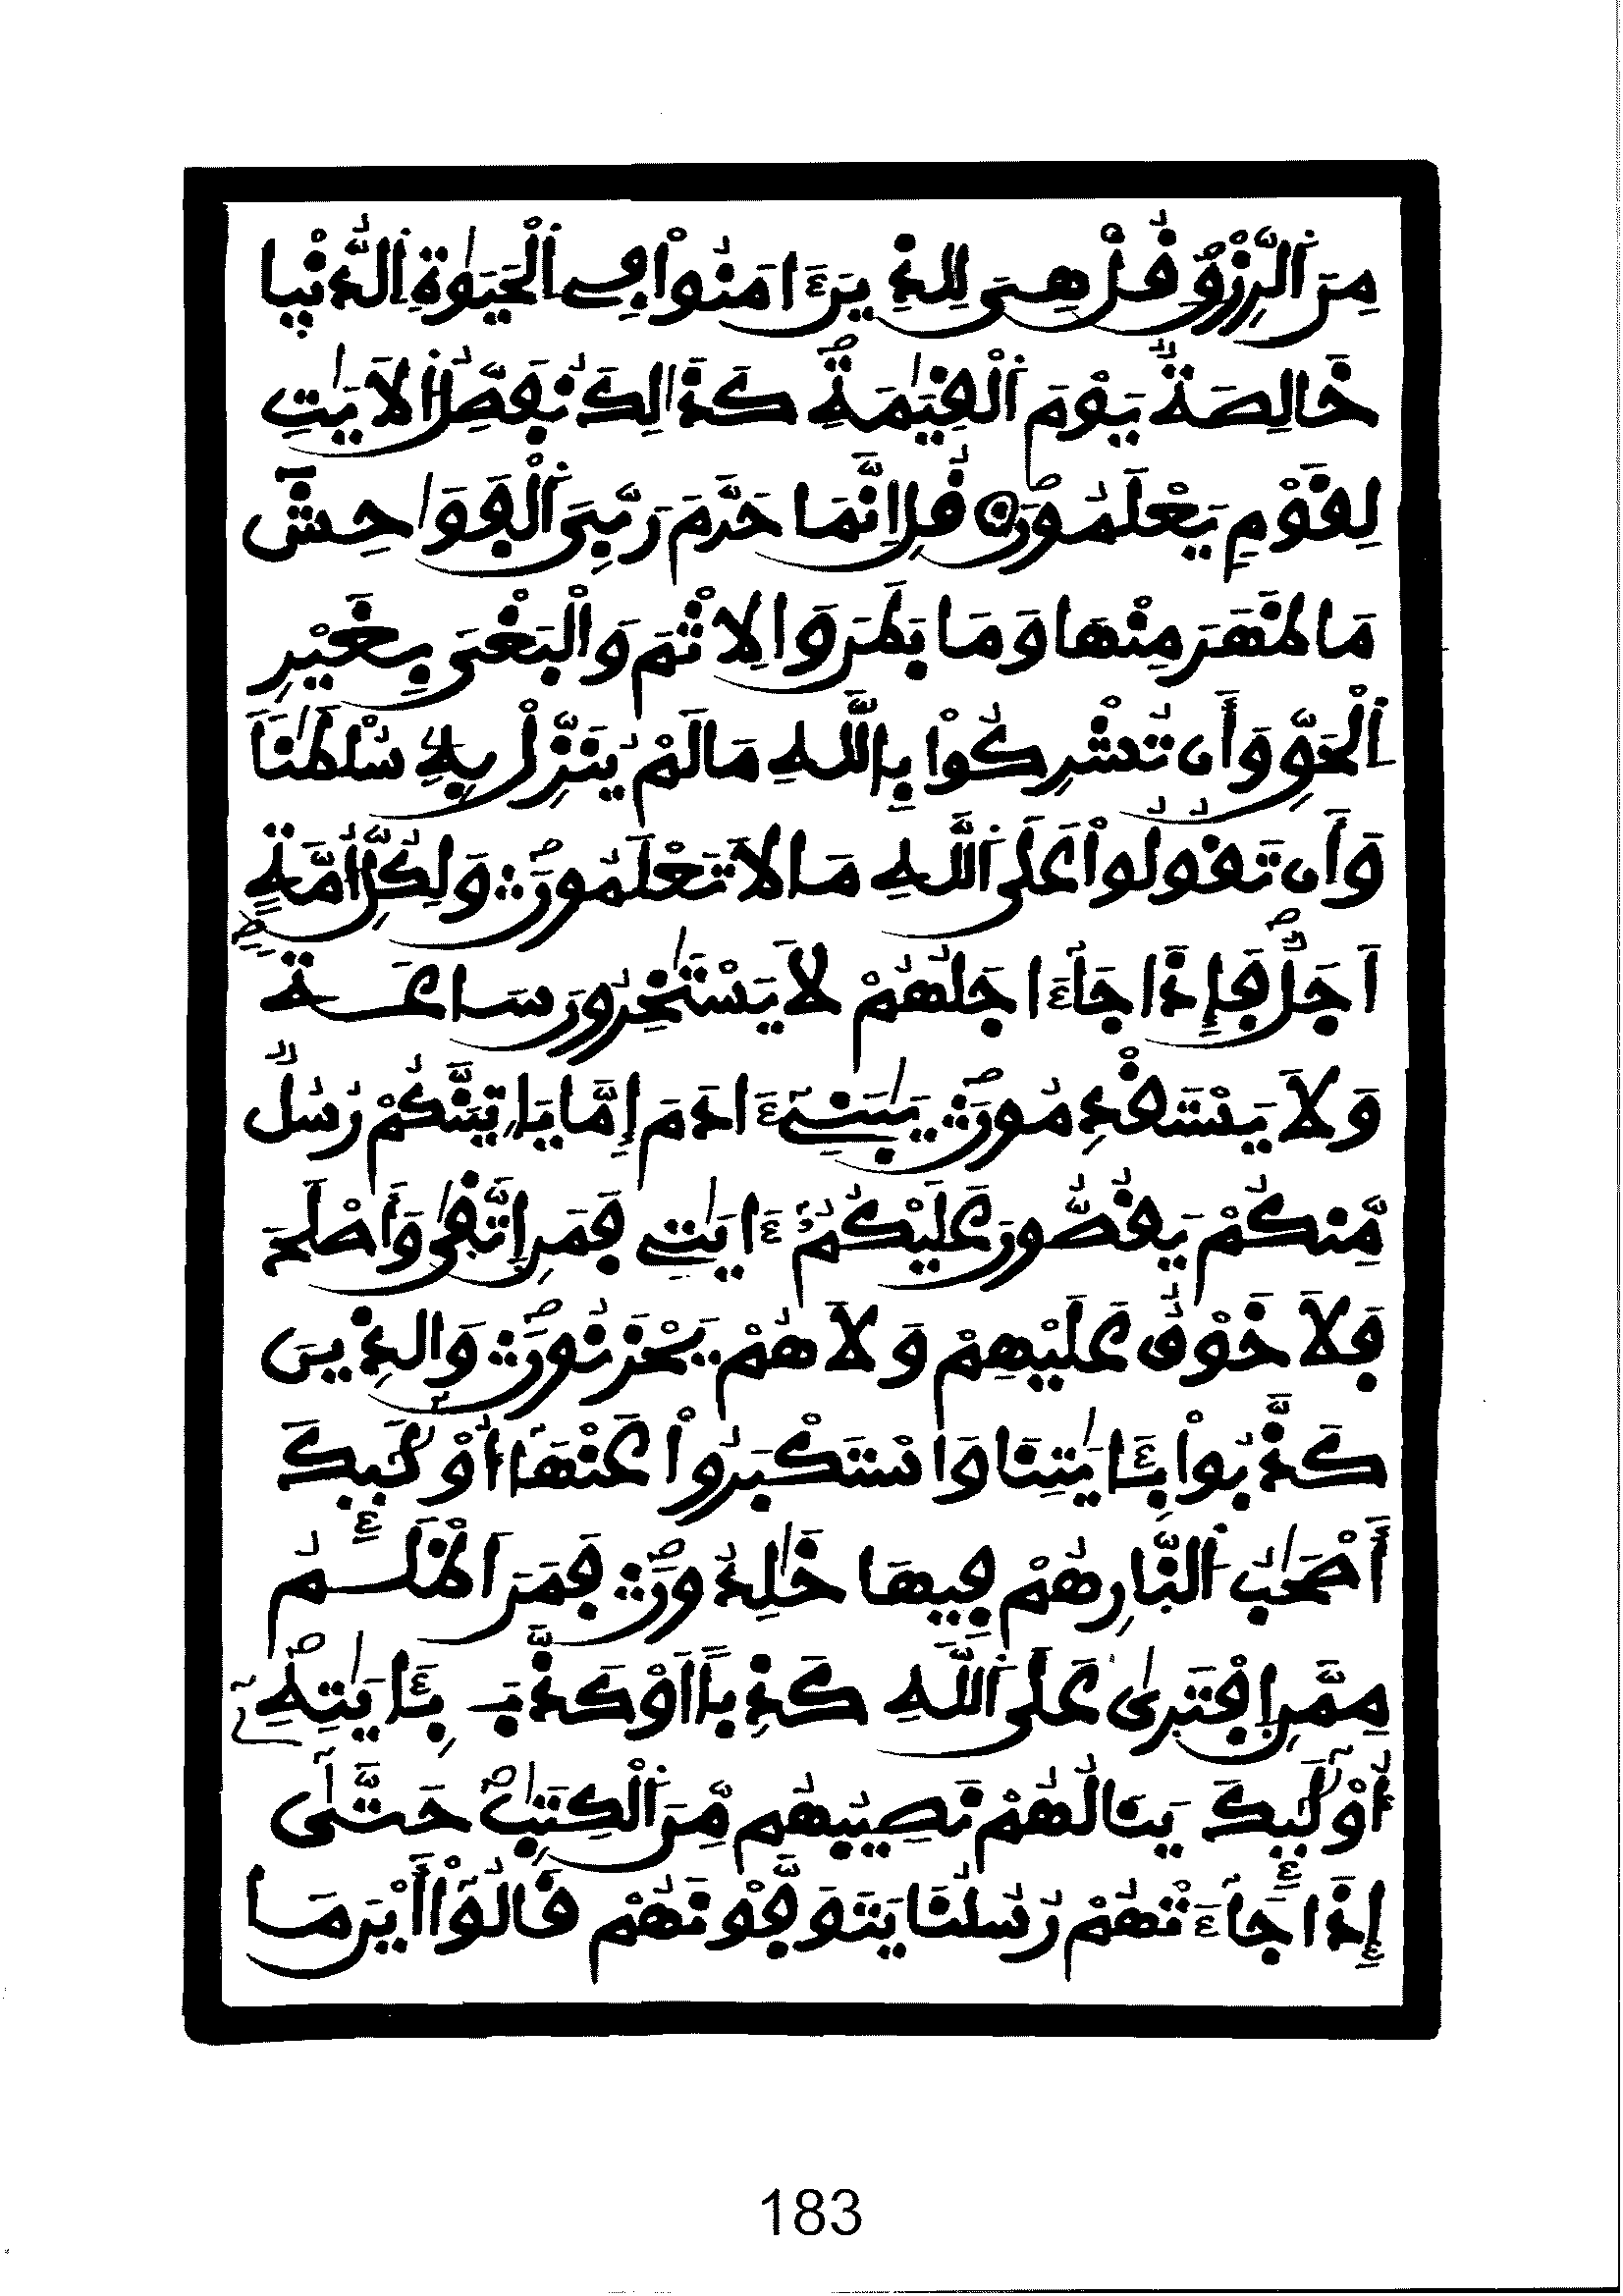 مِنَ اَ۬لرِّزْقِۖ قُلْ هِيَ لِلذِينَ ءَامَنُواْ فِے اِ۬لْحَيَوٰةِ اِ۬لدُّنْيا
خَالِصَةٌ يَوْمَ اَ۬لْقِيَٰمَةِۖ كَذَٰلِكَ نُفَصِّلُ اُ۬لَايَٰتِ
لِقَوْمٍ يَعْلَمُونَۖ قُلِ اِنَّمَا حَرَّمَ رَبِّيَ اَ۬لْفَوَٰحِشَ
مَا ظَهَرَ مِنْهَا وَمَا بَطَنَ وَالِاثْمَ وَالْبَغْيَ بِغَيْرِ
اِ۬لْحَقِّ وَأَن تُشْرِكُواْ بِاللَّهِ مَا لَمْ يُنَزِّلْ بِهِۦ سُلْطَٰناً
وَأَن تَقُولُواْ عَلَى اَ۬للَّهِ مَا لَا تَعْلَمُونَۖ وَلِكُلِّ أُمَّةٍ
اَجَلٌ فَإِذَا جَآءَ اجَلُهُمْ لَا يَسْتَٰخِرُونَ سَاعَةٗ
وَلَا يَسْتَقْدِمُونَۖ يَٰبَنِےٓ ءَادَمَ إِمَّا يَاتِيَنَّكُمْ رُسُلٌ
مِّنكُمْ يَقُصُّونَ عَلَيْكُمُۥٓ ءَايَٰتِے فَمَنِ اِ۪تَّقٰى وَأَصْلَحَ
فَلَا خَوْفٌ عَلَيْهِمْ وَلَا هُمْ يَحْزَنُونَۖ وَالذِينَ
كَذَّبُواْ بِـَٔايَٰتِنَا وَاسْتَكْبَرُواْ عَنْهَآ أُوْلَٰٓئِكَ
أَصْحَٰبُ اُ۬لنّ۪ارِ هُمْ فِيهَا خَٰلِدُونَۖ فَمَنَ اَظْلَمُ
مِمَّنِ اِ۪فْتَر۪ىٰ عَلَى اَ۬للَّهِ كَذِباً اَوْ كَذَّبَ بِـَٔايَٰتِهِۦٓۖ
أُوْلَٰٓئِكَ يَنَالُهُمْ نَصِيبُهُم مِّنَ اَ۬لْكِتَٰبِۖ حَتَّىٰٓ
إِذَا جَآءَتْهُمْ رُسُلُنَا يَتَوَفَّوْنَهُمْ قَالُوٓاْ أَيْنَ مَا
183